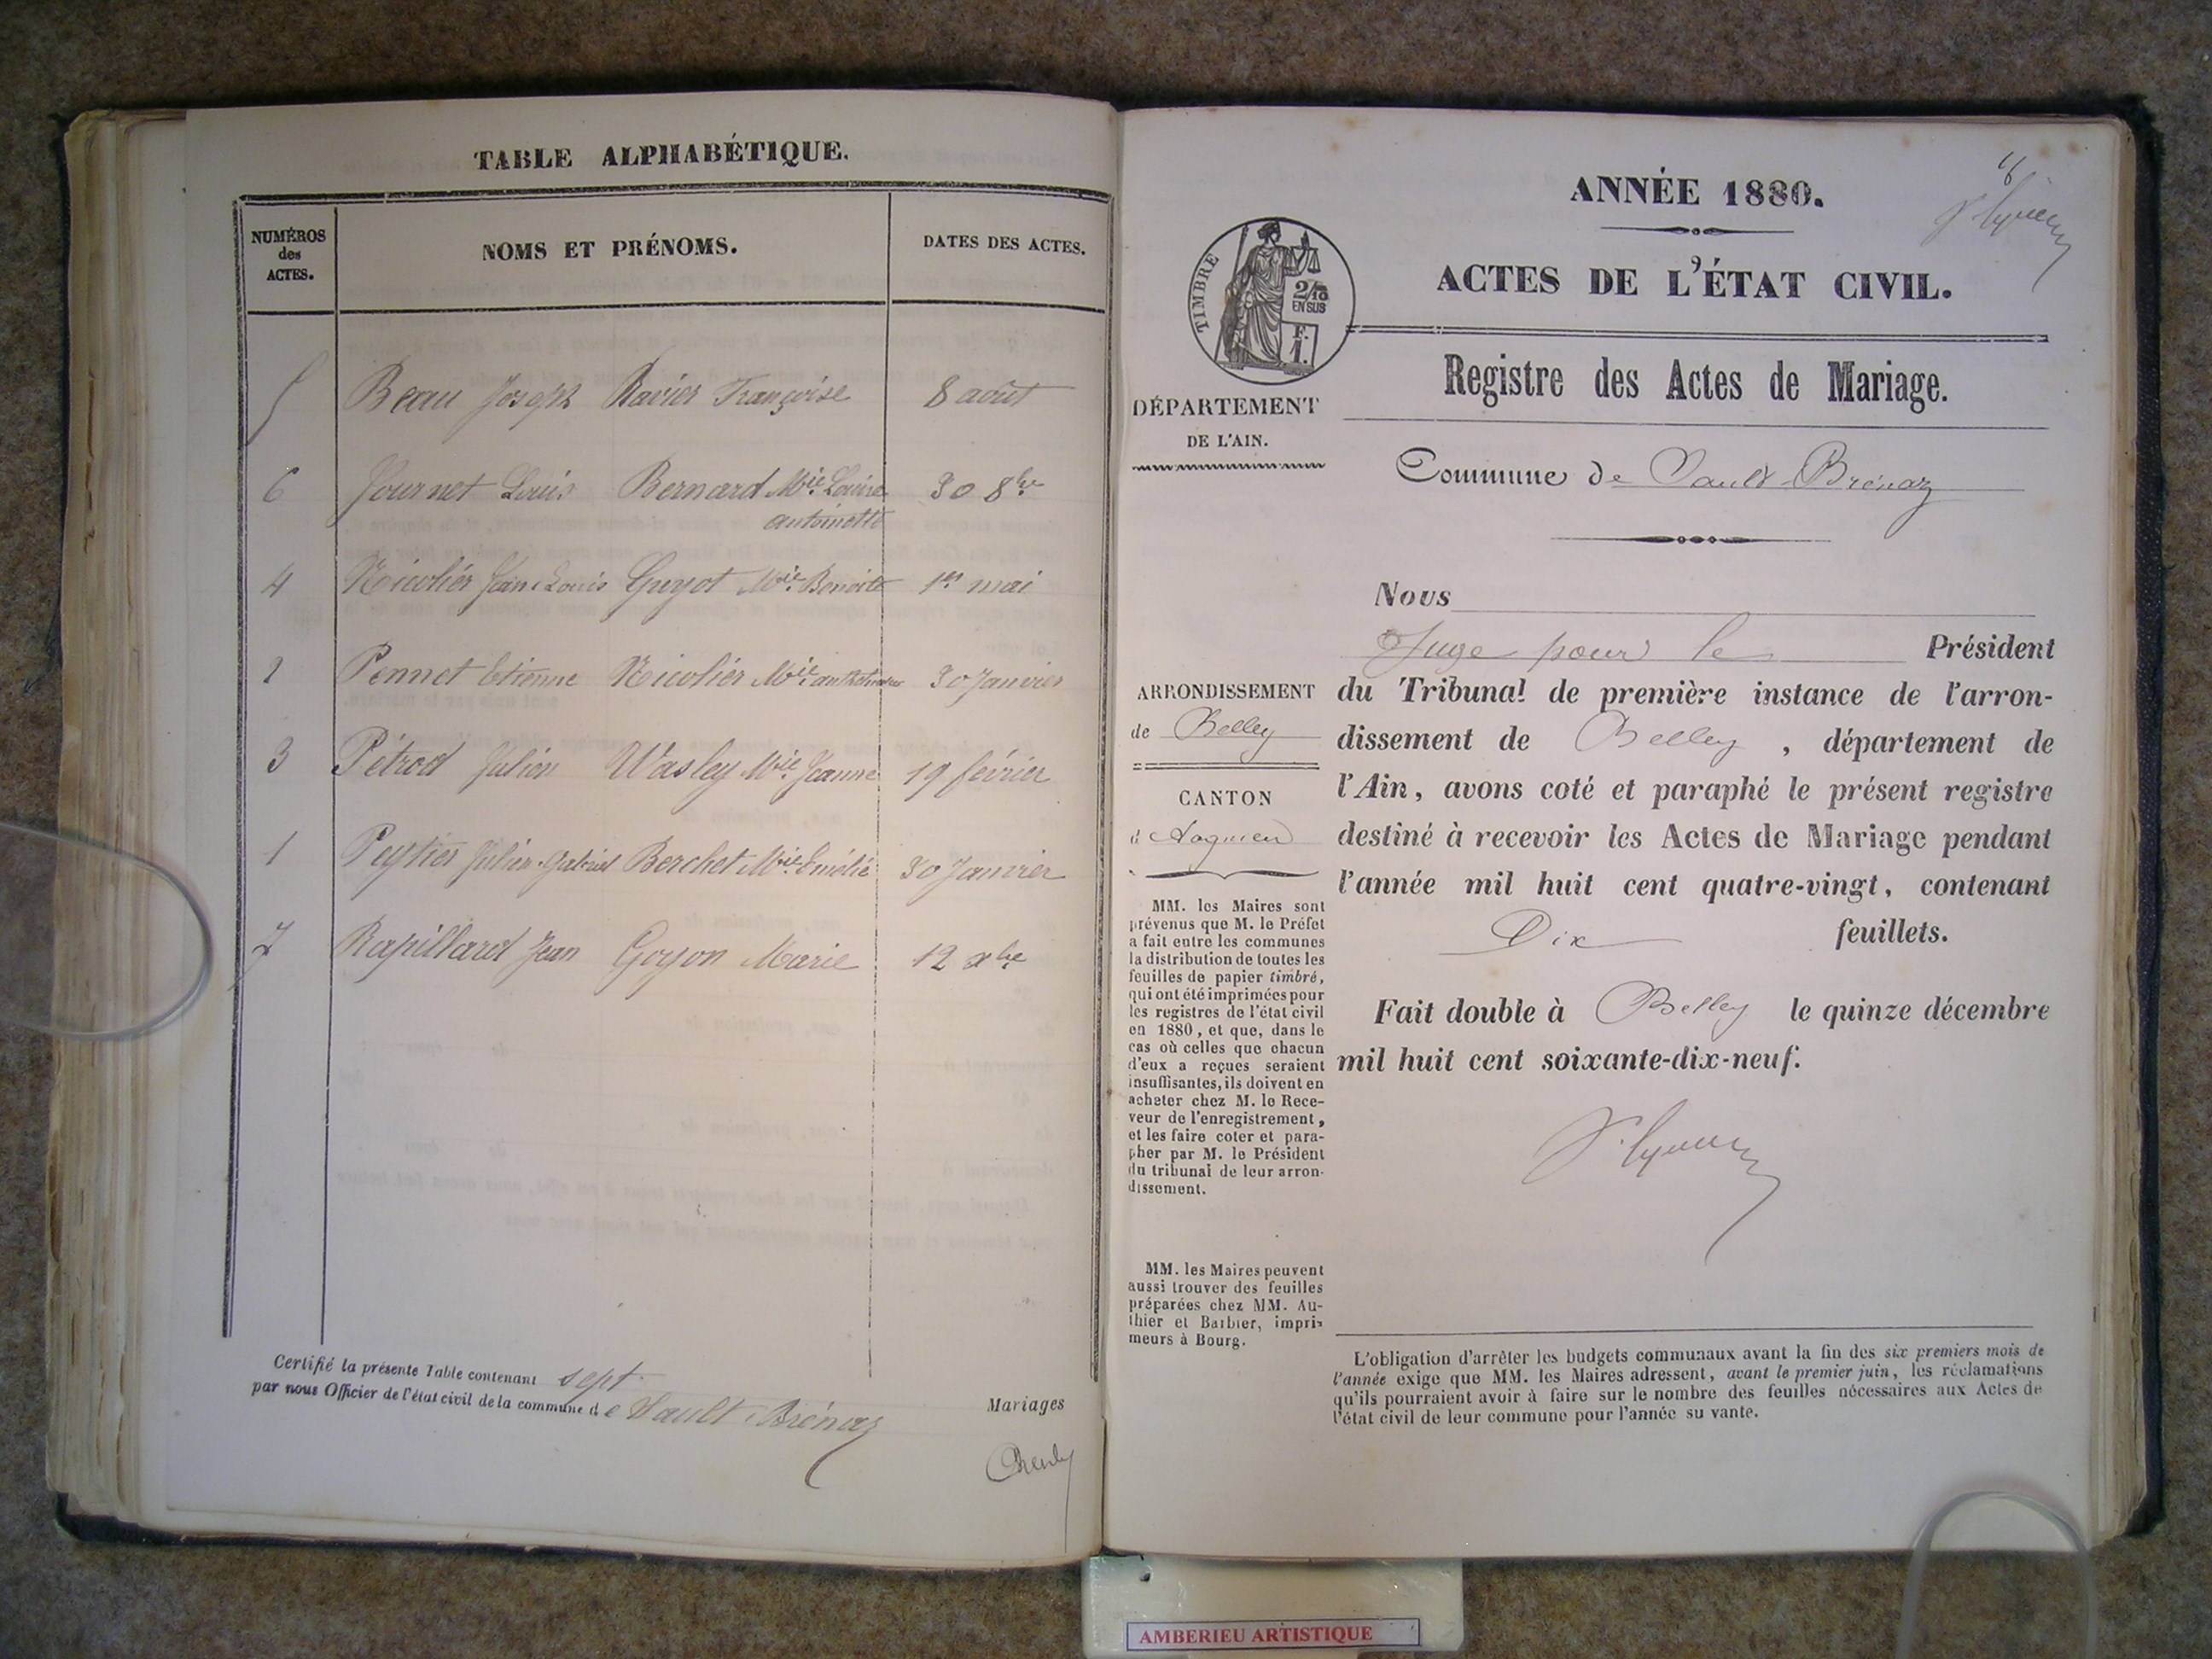 TABLE ALPHABÉTIQUE.
NUMÉROS des ACTES. NOMS ET PRÉNOMS. DATES DES ACTES.
5 Beau Joseph Ravier Françoise 8 août
6 Journet Louis Bernard Mie Louise 30 8bre
antoinette
4 Nicolier Jean-Louis Guyot Mie Benoite 1er mai
2 Pennet Etienne Nicolier Mie 30 Janvier
3 Pétrod Julien Wasley Mie Jeanne 19 février
1 Peytier Julien Gabriel Berchet Mie Emélie 30 Janvier
7 Rapillard Jean Goyon Marie 12 xbre
Certifié la présente Table contenant sept
Mariages
par nous Officier de l'état civil de la commune de Sault-Brénaz
ANNÉE 1880.
ACTES DE L'ÉTAT CIVIL.
TIMBRE
2/10
EN SUS
F.
1.
Registre des Actes de Mariage.
DÉPARTEMENT
DE L'AIN.
Commune de Sault-Brénaz
Nous
Juge pour le Président
du Tribunal de première instance de l'arron-
dissement de Belley, département de
l'Ain, avons coté et paraphé le présent registre
destiné à recevoir les Actes de Mariage pendant
l'année mil huit cent quatre-vingt, contenant
Dix feuillets.
Fait double à Belley le quinze décembre
mil huit cent soixante-dix-neuf.
ARRONDISSEMENT
de Belley
CANTON
de Lagnieu
MM. les Maires sont
prévenus que M. le Préfet
a fait entre les communes
la distribution de toutes les
feuilles de papier timbré,
qui ont été imprimées pour
les registres de l'état civil
en 1880, et que, dans le
cas où celles que chacun
d'eux a reçues seraient
insuffisantes, ils doivent en
acheter chez M. le Rece-
veur de l'enregistrement,
et les faire coter et para-
pher par M. le Président
du tribunal de leur arron-
dissement.
MM. les Maires peuvent
aussi trouver des feuilles
préparées chez MM. Au-
thier et Barbier, impri-
meurs à Bourg.
L'obligation d'arrêter les budgets communaux avant la fin des six premiers mois de
l'année exige que MM. les Maires adressent, avant le premier juin, les réclamations
qu'ils pourraient avoir à faire sur le nombre des feuilles nécessaires aux Actes de
l'état civil de leur commune pour l'année su vante.
AMBERIEU ARTISTIQUE